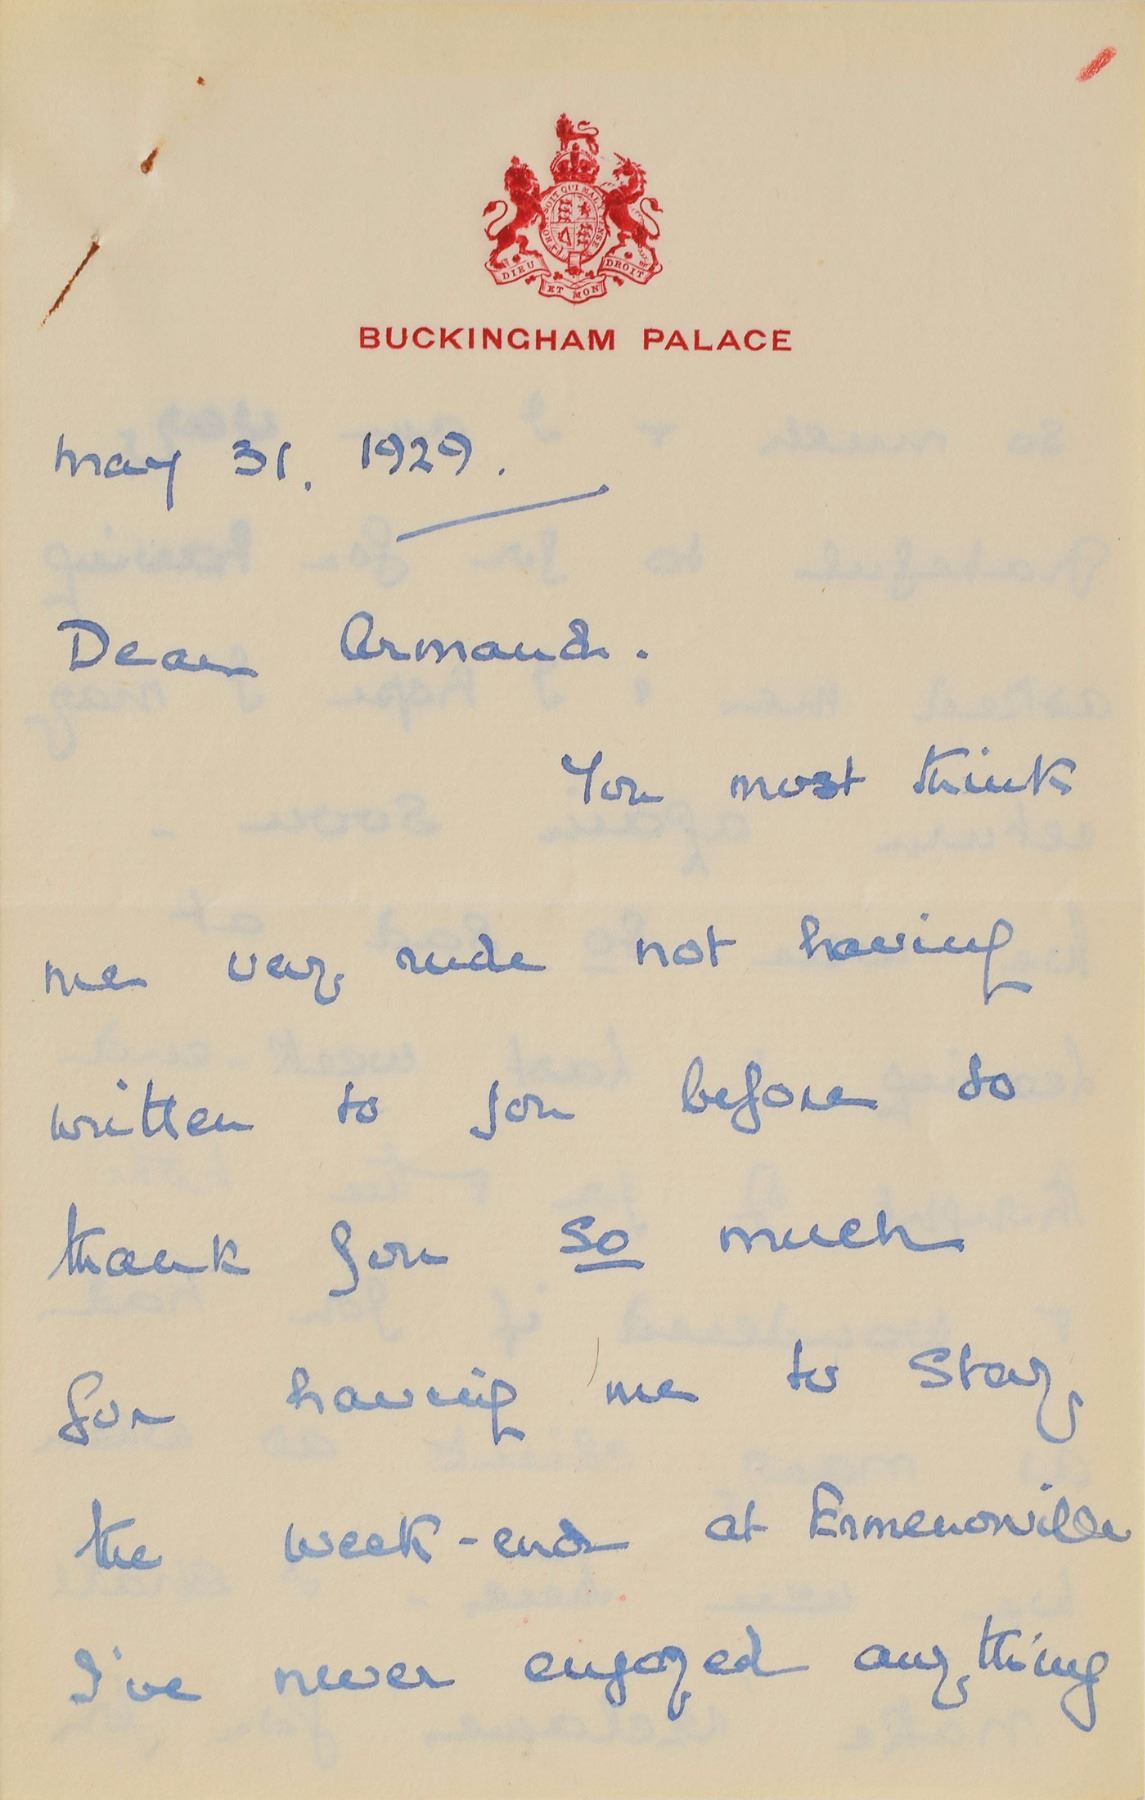 HONI SOIT QUI MAL Y PENSE
DIEU ET MON DROIT
BUCKINGHAM PALACE
May 31. 1929.
Dear Armand.
You must think
me very rude not having
written to you before to
thank you so much
for having me to stay
the week-end at Ermenonville
I've never enjoyed anything